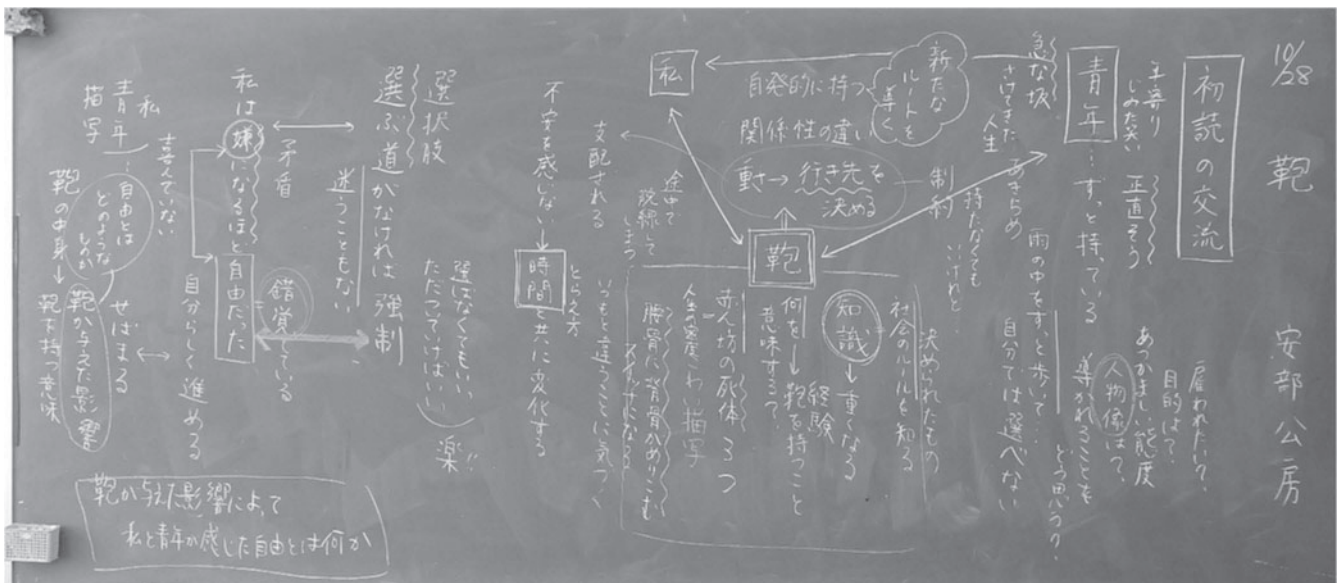 10/28
鞄
安部公房
初読の交流
雇われたい?
目的は?
あつかましい態度
人物像は?
導かれることを
どう思う?
年寄り
じみた笑い
正直そう
青年…ずっと持っている
雨の中をずっと歩いて…
自分では選べない
急な坂
さけてきた
人生
あきらめ
持たなくても
いいけれど…
制約
新たな
ルートを
導く
私
自発的に持つ
関係性の違い
重さ→行き先を
決める
鞄
決められたもの
社会のルールを知る
知識→重くなる
経験
何を→鞄を持つこと
意味する?
赤ん坊の死体 3つ
人生の密度 こわい描写
腰骨に背骨がめりこむ
途中で
脱線して
しまう
支配される
いつもと違うことに気づく
とらえ方
不安を感じない→時間と共に変化する
選択肢
選ぶ道がなければ
迷うこともない
強制
選ばなくてもいい
ただ歩いていけばいい
楽!!
矛盾
私は嫌になるほど自由だった
錯覚している
自分らしく進める
せばまる
喜んでいない
私
青年
描写
自由とは
どのような
ものか
鞄の中身→鞄が与えた影響
鞄を持つ意味
鞄が与えた影響によって
私と青年が感じた自由とは何か